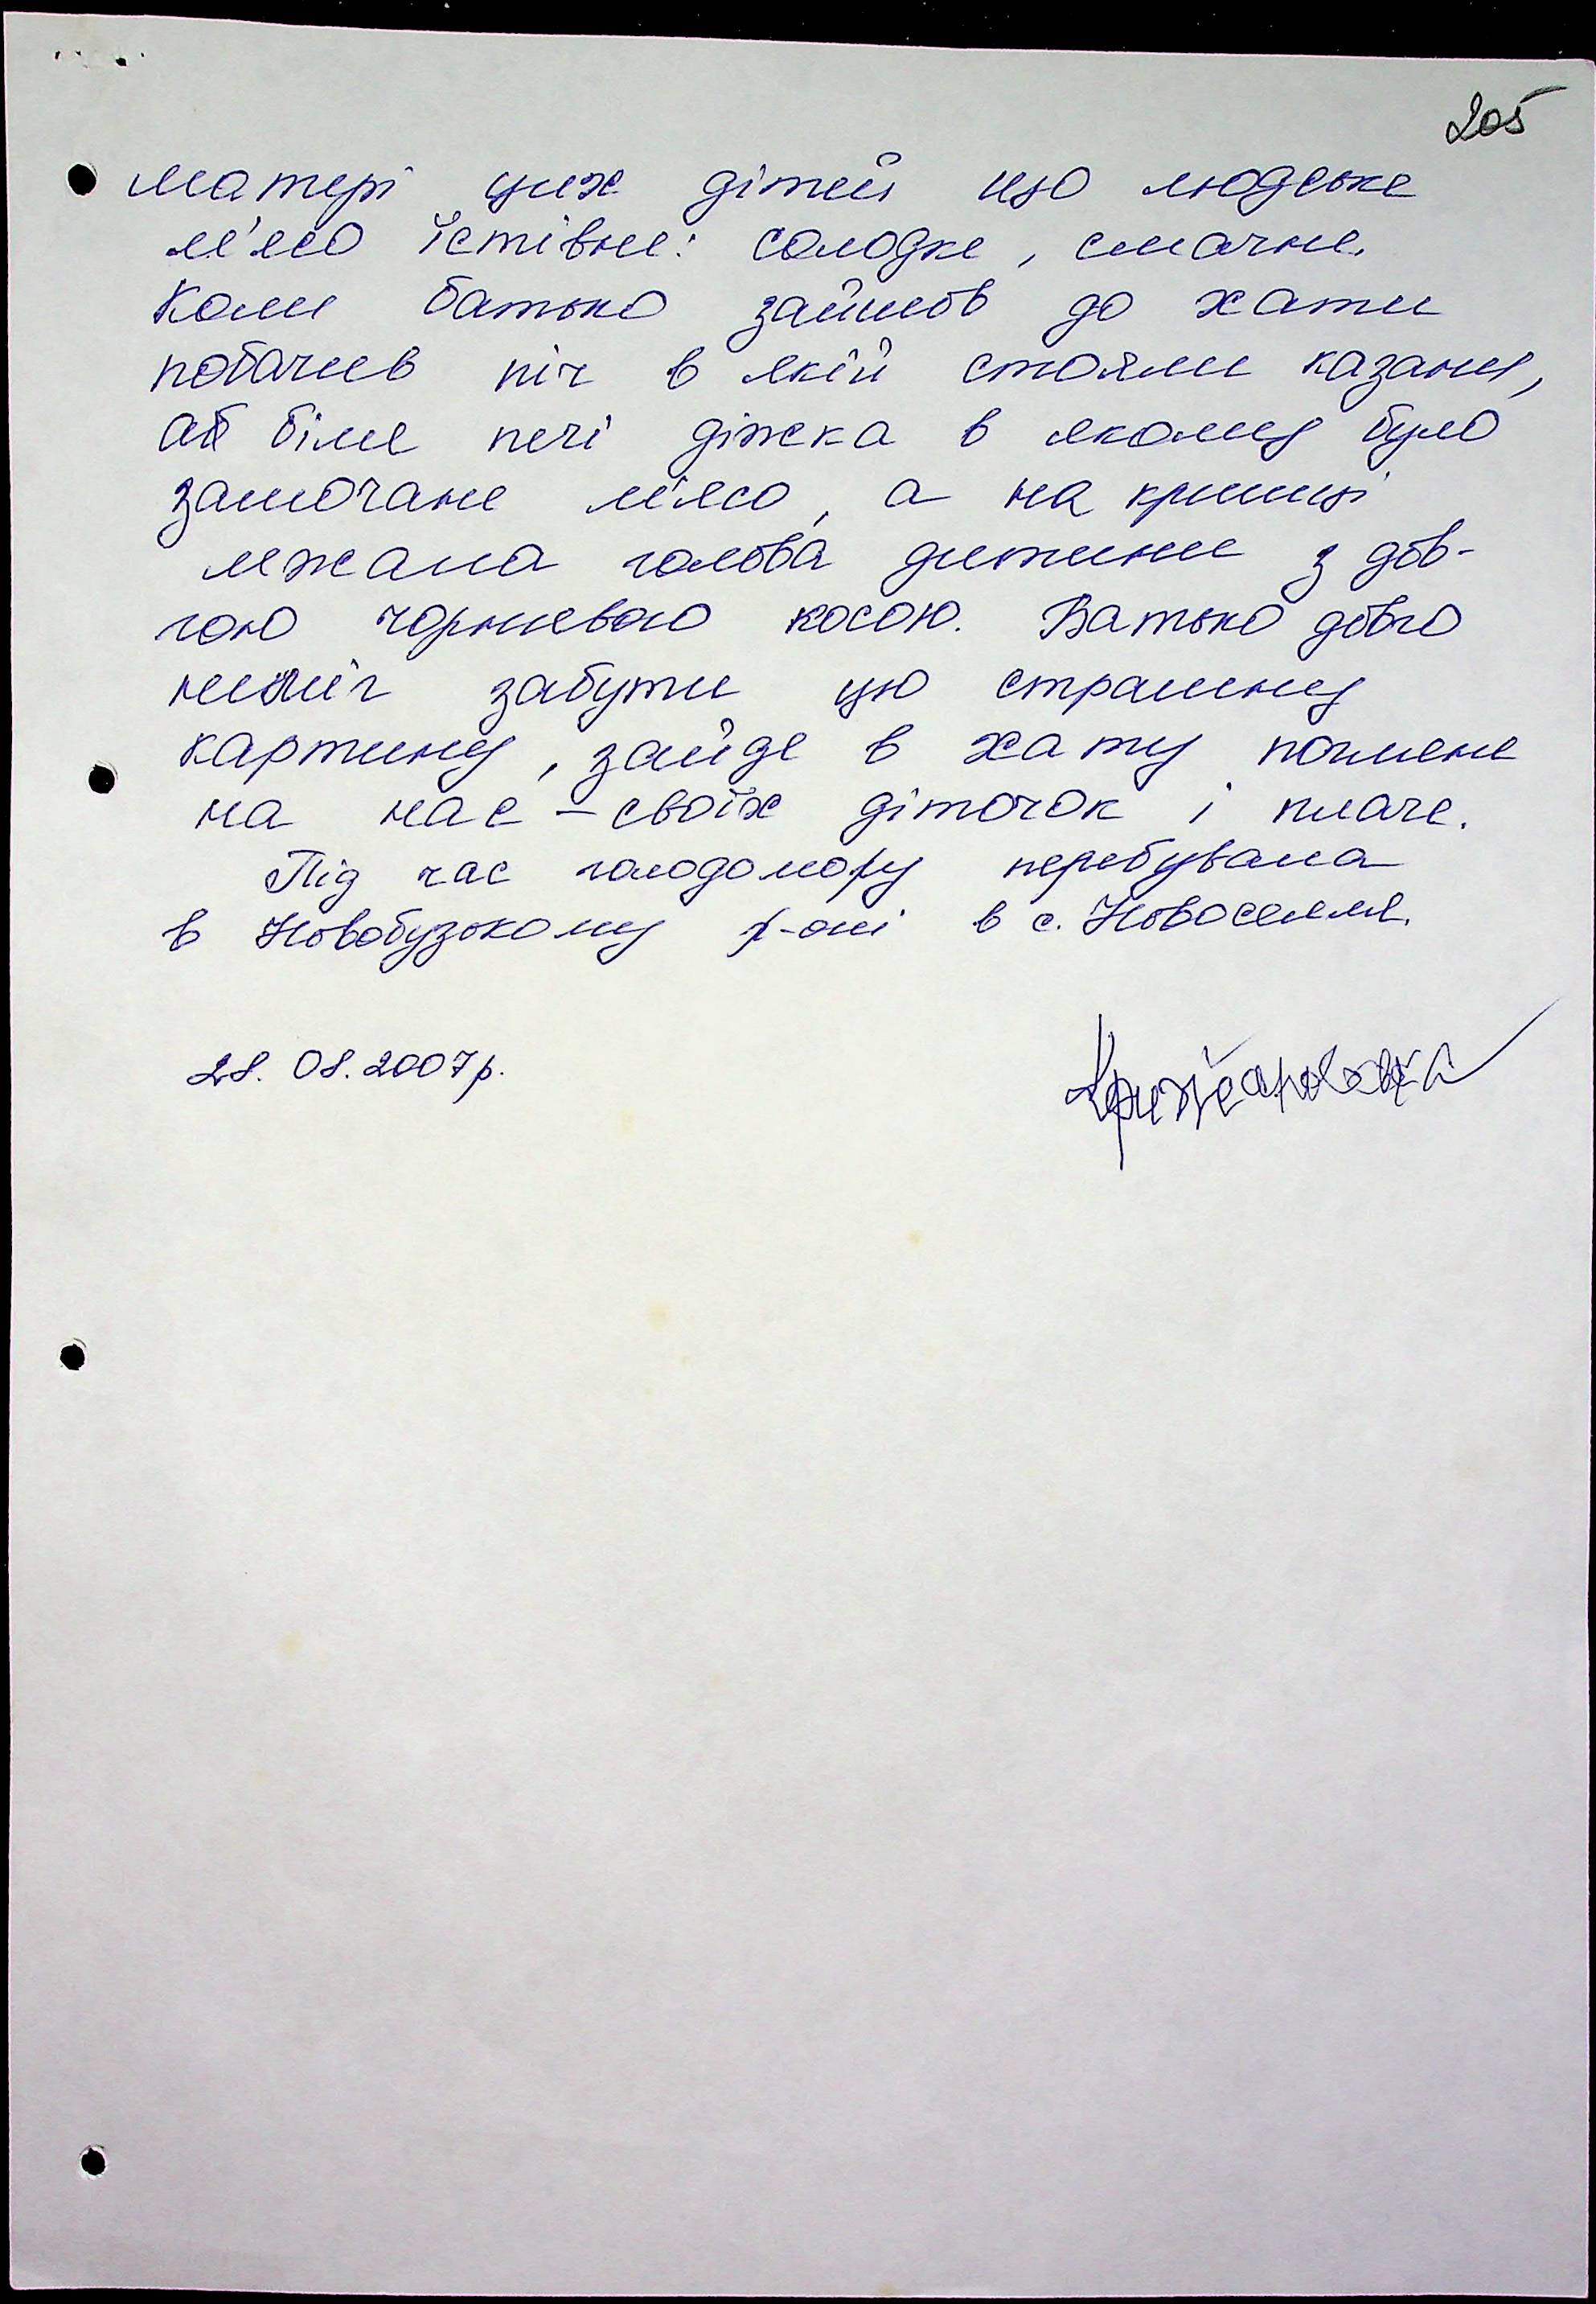 205
матері цих дітей що людське
м'ясо їстівне: солодке, смачне.
Коли батько зайшов до хати
побачив піч в якій стояли казани,
а біля печі діжка в якому було
замочане м'ясо, а на кришці
лежала голова дитини з дов-
гою чорнявою косою. Батько довго
не міг забути цю страшну
картину, зайде в хату погляне
на нас – своїх діточок і плаче.
Під час голодомору перебувала
в Новобузькому р-оні в с. Новоселля.
28. 08. 2007 р.